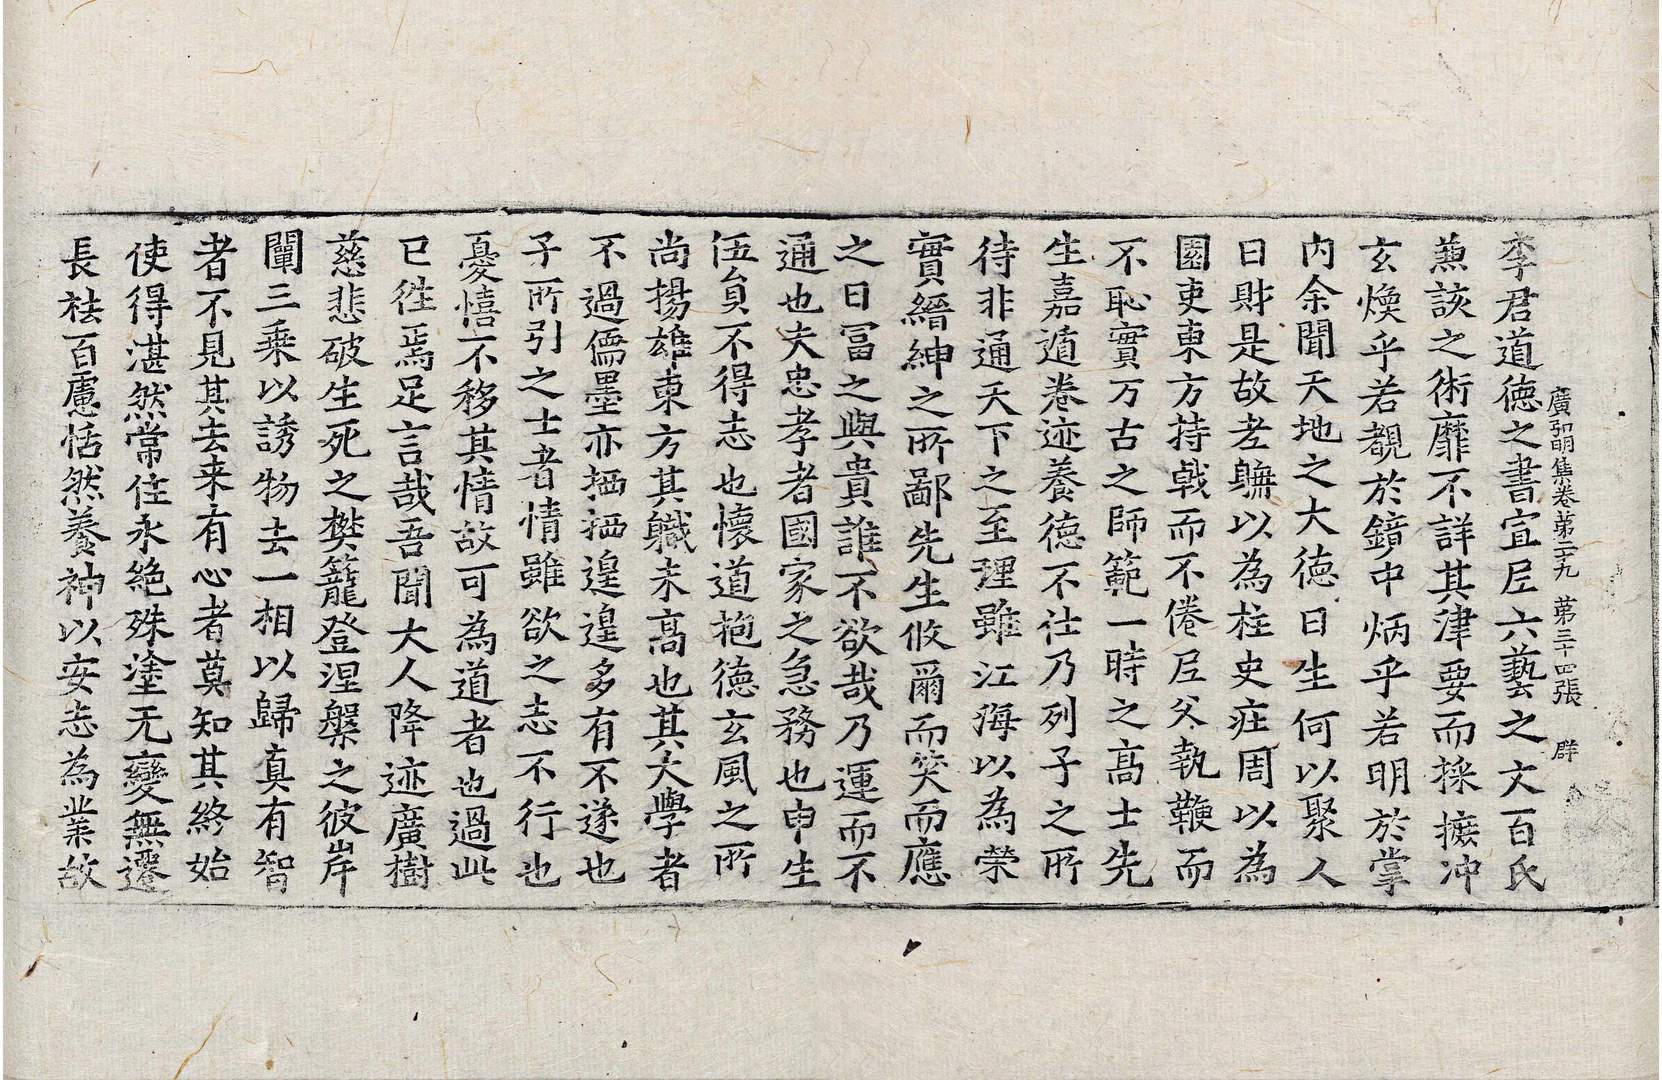 廣弘明集卷第二十九 第三十四張 群
李君道德之書宣尼六藝之文百氏
兼該之術靡不詳其津要而採摭沖
玄煥乎若覩於鏡中炳乎若明於掌
內余聞天地之大德曰生何以聚人
曰財是故老聃以為柱史莊周以為
園吏東方持戟而不倦尼父執鞭而
不恥實万古之師範一時之高士先
生嘉遁卷迹養德不仕乃列子之所
待非通天下之至理雖江海以為榮
實縉紳之所鄙先生攸爾而笑而應
之曰冨之與貴誰不欲哉乃運而不
通也夫忠孝者國家之急務也申生
伍員不得志也懷道抱德玄風之所
尚揚雄東方其軄未高也其大學者
不過儒墨亦栖栖遑遑多有不遂也
子所引之士者情雖欲之志不行也
憂憘不移其情故可為道者也過此
已徃焉足言哉吾聞大人降迹廣樹
慈悲破生死之樊籠登涅槃之彼岸
闡三乘以誘物去一相以歸真有智
者不見其去来有心者莫知其終始
使得湛然常住永絕殊塗无變無遷
長祛百慮恬然養神以安志為業故